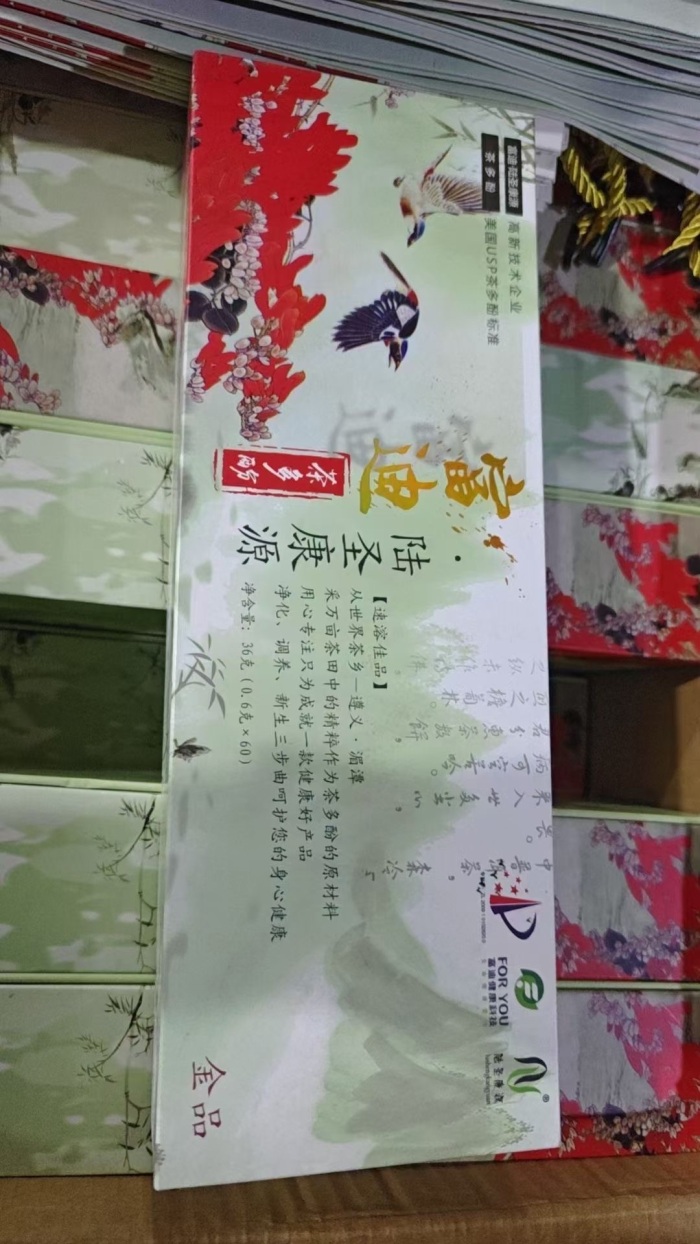 富迪·陆圣康源
茶多酚
高新技术企业
美国USP茶多酚标准
富迪
茶多酚
·陆圣康源
【速溶佳品】
从世界茶乡—遵义·湄潭
采万亩茶田中的精粹作为茶多酚的原材料
用心专注只为成就一款健康好产品
净化、调养、新生三步曲呵护您的身心健康
净含量：36克（0.6克×60）
FOR YOU
富迪健康科技
陆圣康源
金品